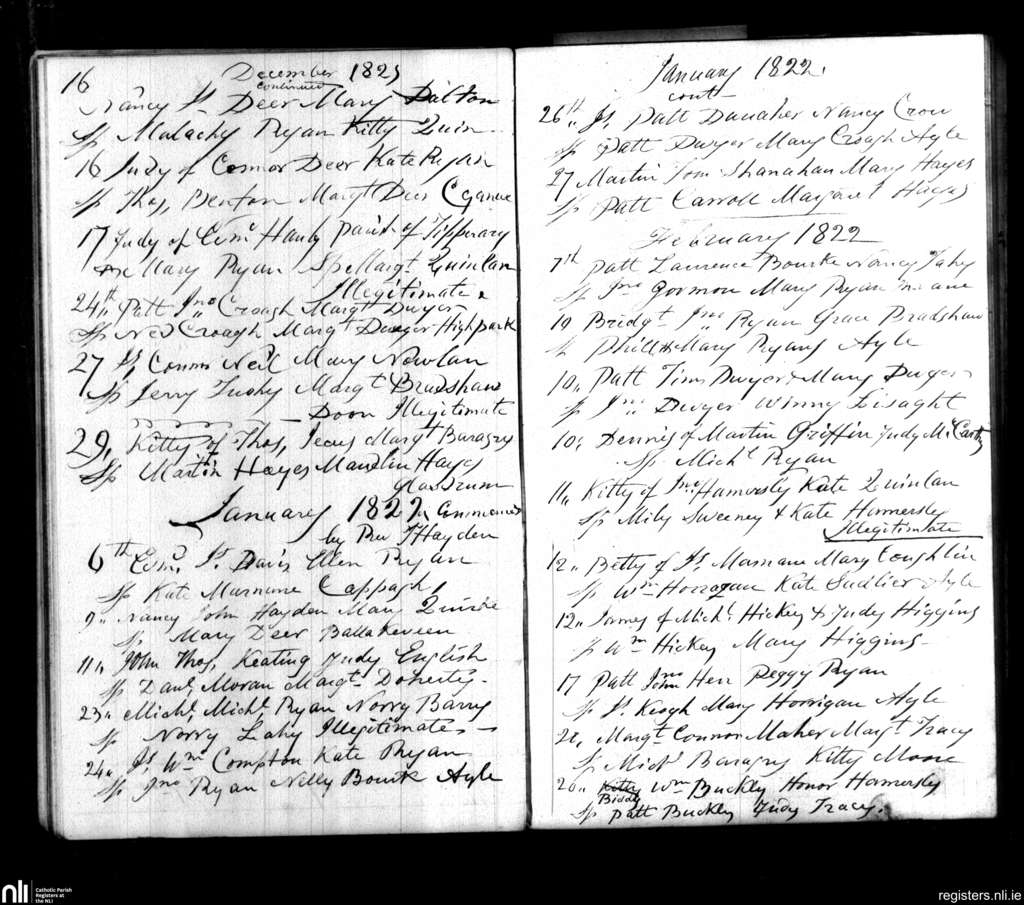 December 1821
continued
16
Nancy Js. Deer Mary Dalton
Sp Malachy Ryan Kitty Quin
16 Judy of Connor Deer Kate Ryan
Sp Thos. Benton Margt Deer
17 Judy of Edmd Hanly parish of Tipperary
Mary Ryan Sp Margt Quinlan
Illegitimate
24th Patt Jno Croagh Margt Dwyer
Sp Ned Croagh Margt Dwyer Highpark
27 Js. Connor Neil Mary Nowlan
Sp Jerry Margt Bradshaw
Doon Illegitimate
29, Kitty of Thos, Margt Baragry
Sp Martin Hayes Maudlin Hayes
Glassdrum
January 1822 Commenced
by Rev T Hayden
6th Edmd. Js. Davis Ellen Ryan
Sp Kate Marnane Cappagh
9" Nancy John Hayden Mary
Sp Mary Deer Ballakeveen
11" John Thos, Keating Judy English
Sp Danl, Moran Margt Doherty
23" Michl, Michl, Ryan Norry Barry
Sp Norry Lahy Illegitimate
24" Js Wm Compton Kate Ryan
Sp Jno Ryan Nelly Bourk Ayle
January 1822.
cont
26th" Js, Patt Danaher Nancy Crow
Sp Patt Dwyer Mary Croagh Ayle
27 Martin Tom Shanahan Mary Hayes
Sp Patt Carroll Margaret Hayes
February 1822
7th Patt Laurence Bourke Nancy Fahy
Sp Jno Gorman Mary Ryan
10 Bridgt Jno Ryan Grace Bradshaw
Sp Phill & Mary Ryans Ayle
10" Patt Tim Dwyer & Mary Dwyer
Sp Jno Dwyer Winny Lisaght
10, Dennis of Martin Griffin Judy McCarty
Sp Michl Ryan
11" Kitty of Jno Hamersly Kate Quinlan
Sp Mily Sweeney & Kate Hamersly
Illegitimate
12" Betty of Js. Marnane Mary Coughlin
Sp Wm Horragan Kate Sadlier Ayle
12" James of Michl Hickey & Judy Higgins
Sp Wm Hickey Mary Higgins
17 Patt John Herr Peggy Ryan
Sp Js. Keogh Mary Horrigan Ayle
20, Margt Connor Maher Margt Tracy
Sp Michl Baragry Kitty Moore
20" Kitty Wm Buckley Honor Hamersly
Biddy
Sp Patt Buckley Judy Tracy.
nli
Catholic Parish
Registers at
the NLI
registers.nli.ie